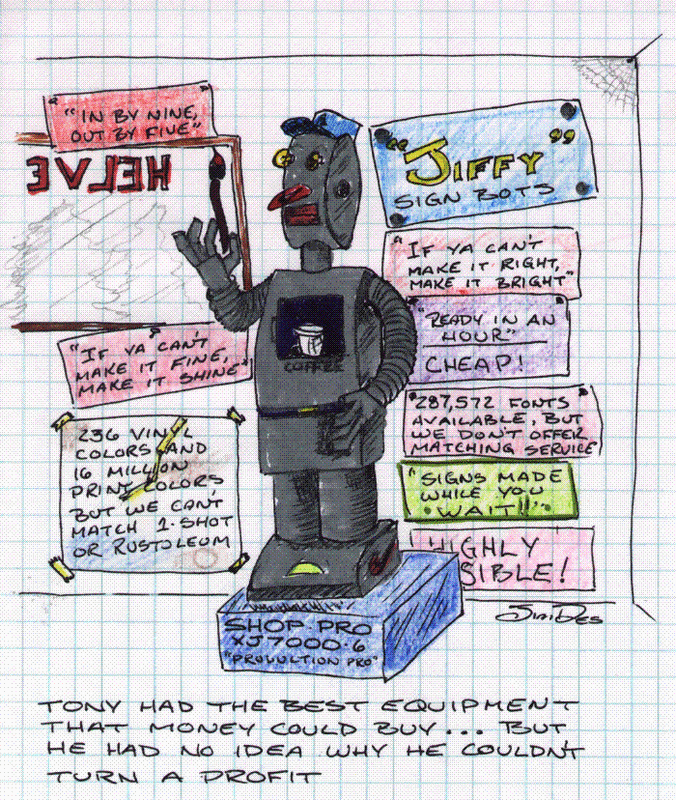 "IN BY NINE,
OUT BY FIVE"
HELVE
"JIFFY"
SIGN BOTS
"IF YA CAN'T
MAKE IT RIGHT,
MAKE IT BRIGHT"
"READY IN AN
HOUR"
CHEAP!
COFFEE
"IF YA CAN'T
MAKE IT FINE,
MAKE IT SHINE"
"287,572 FONTS
AVAILABLE, BUT
WE DON'T OFFER
MATCHING SERVICE"
236 VINYL
COLORS AND
16 MILLION
PRINT COLORS
BUT WE CAN'T
MATCH 1-SHOT
OR RUSTOLEUM
"SIGNS MADE
WHILE YOU
WAIT!!"
HIGHLY
SIBLE!
SHOP PRO
XJ7000-6
"PRODUCTION PRO"
TONY HAD THE BEST EQUIPMENT
THAT MONEY COULD BUY... BUT
HE HAD NO IDEA WHY HE COULDN'T
TURN A PROFIT